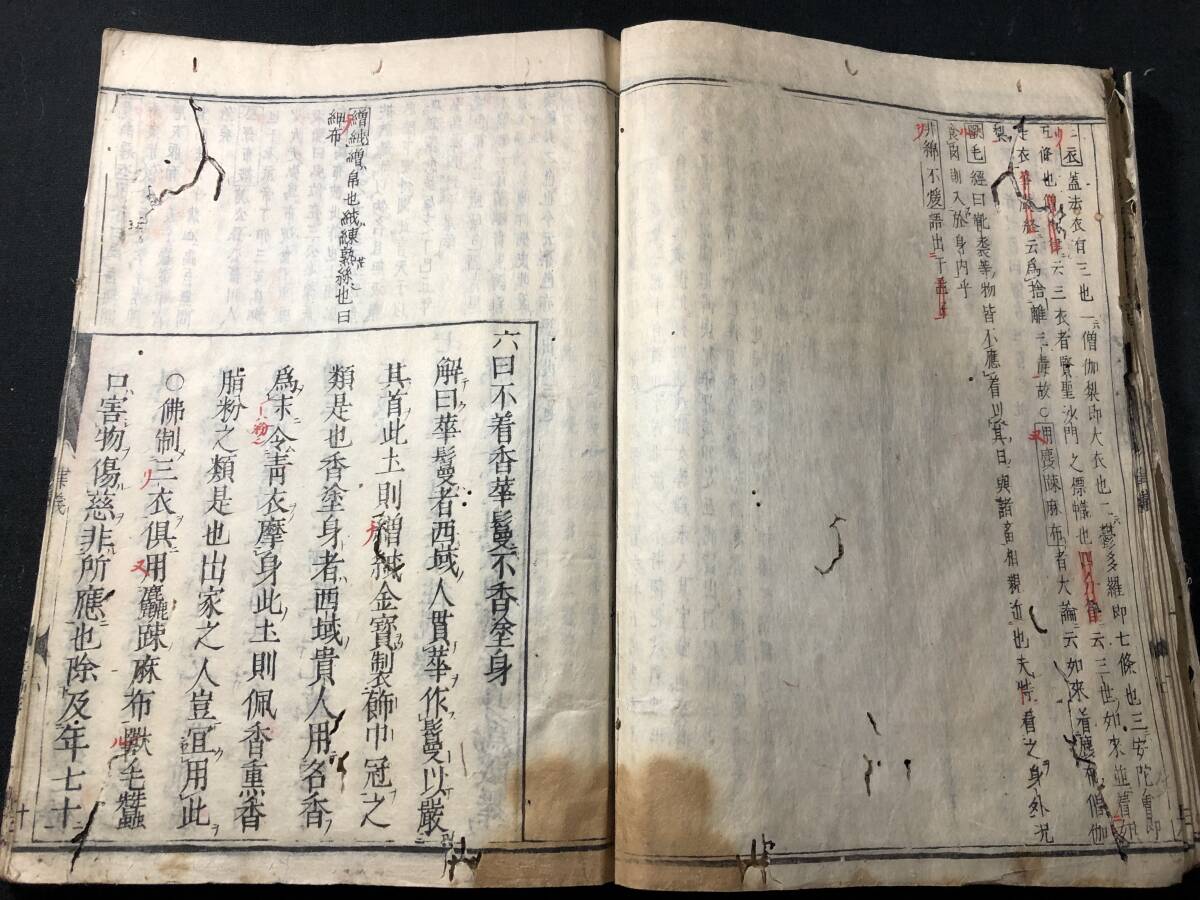 三衣蓋法衣有三也一僧伽梨即大衣也一鬱多羅即七條也三安陀會即
五條也僧祇律云三衣者賢聖沙門之標幟也四分律云三世如來並着如
是衣華嚴経云爲捨離三毒故○用麁疎麻布者大論云如來着麁布僧伽
梨
獸毛經曰靴裘等物皆不應着以其日與諸畜相親近也夫恃着之身外况
食肉則入於身内乎
非綿不煖語出于孟子
繒絨繒帛也絨練熟絲也曰
紬布
六曰不着香華鬘不香塗身
解曰華鬘者西域人貫華作鬘以嚴
其首此土則繒絨金寶製飾巾冠之
類是也香塗身者西域貴人用名香
爲末令靑衣摩身此土則佩香熏香
脂粉之類是也出家之人豈宜用此
○佛制三衣俱用麤疎麻布獸毛蠶
口害物傷慈非所應也除及年七十